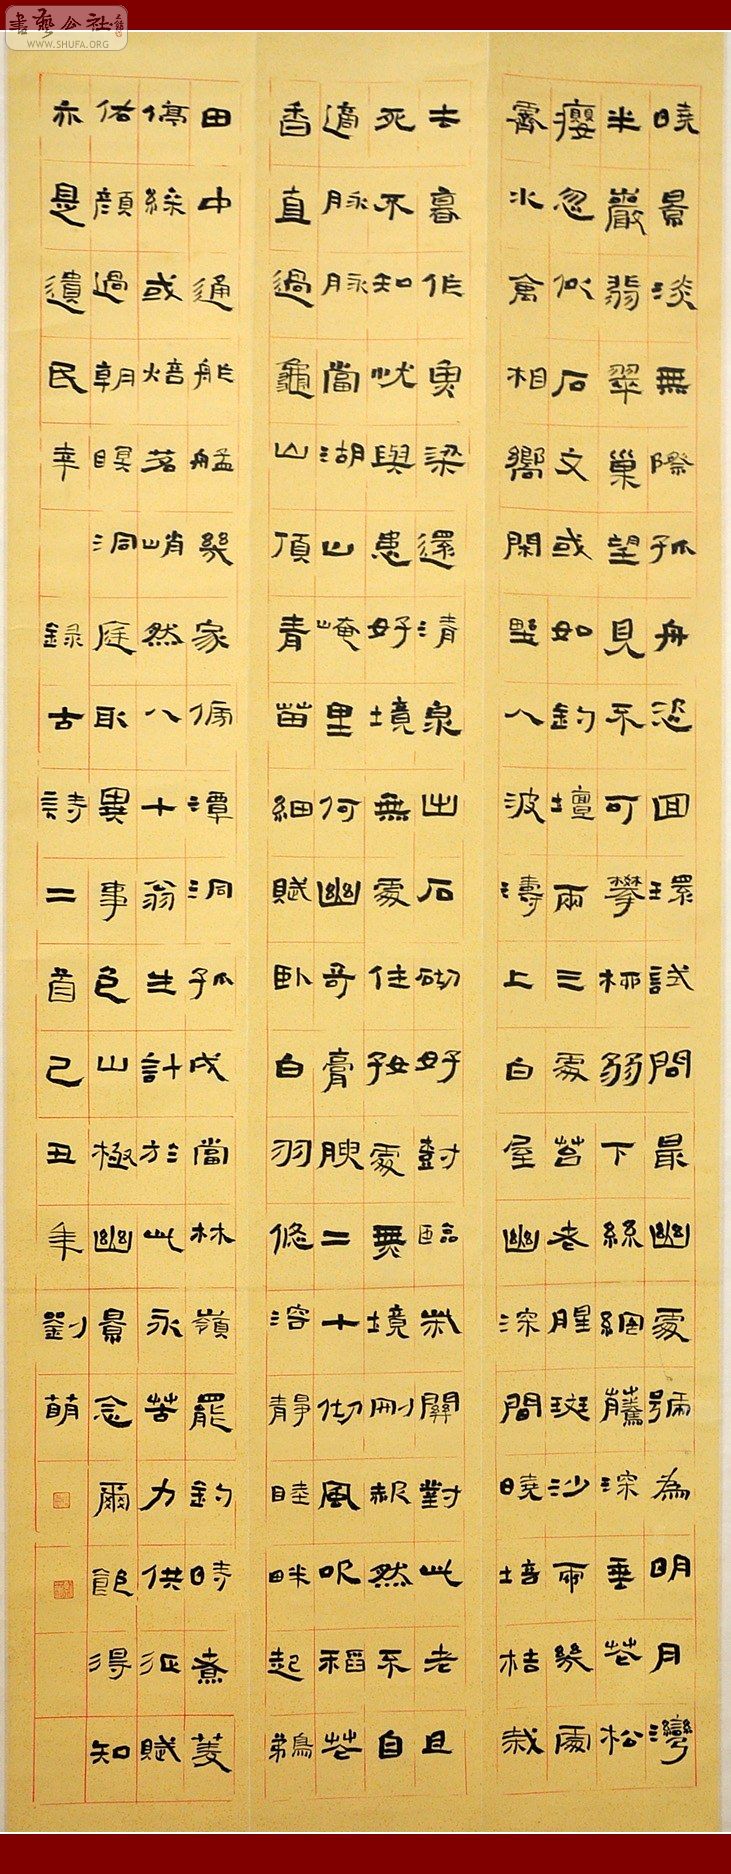 曉景淡無際孤舟恣囬環試問最幽處號為明月灣
半巖翡翠巢望見不可攀柳弱下絲網藤深垂花松
癭忽似石文或如釣壇兩三處苔老腥斑沙雨幾處
霽水禽相嚮閑野人波濤上白屋幽深間曉培桔栽
去暮作魚梁還清泉出石砌好尌臨柴關對此老且
死不知忧與患好境無處住好處無境刪赧然不自
適脉脉當湖山崦里何幽奇膏腴二十仞風吹稻花
香直過龜山頂青苗細賦卧白羽悠溶靜睦畔起鵜
田中通舴艋幾家傍潭洞孤戍當林嶺罷釣時煮菱
停綵或焙茗峭然八十翁生計於此永苦力供征賦
佑顔過朝暝洞庭取異事包山極幽景念爾飽得知
亦是遺民幸 録古詩二首己丑年劉萌
書藝公社
WWW.SHUFA.ORG